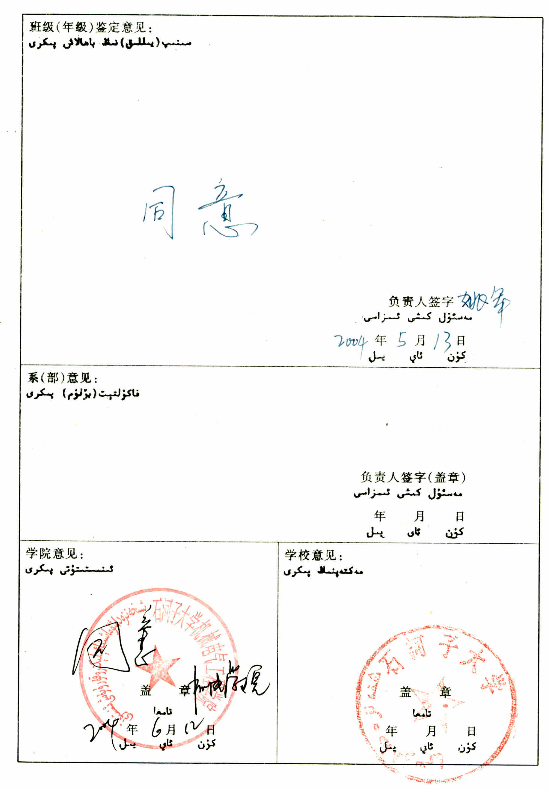 班级(年级)鉴定意见:
سىنىپ(يىللىق)نىڭ باھالاش پىكرى
同意
负责人签字
مەسئۇل كىشى ئىمزاسى
2004 年 5 月 13 日
كۈن ئاي يىل
系(部)意见:
فاكۇلتېت(بۆلۈم) پىكرى
负责人签字(盖章)
مەسئۇل كىشى ئىمزاسى
年 月 日
كۈن ئاي يىل
学院意见:
ئىنستىتۇتى پىكرى
同意
石河子大学机械
盖 章
تامغا
2004 年 6 月 12 日
كۈن ئاي يىل
学校意见:
مەكتەپنىڭ پىكرى
石河子大学
盖 章
تامغا
年 月 日
كۈن ئاي يىل